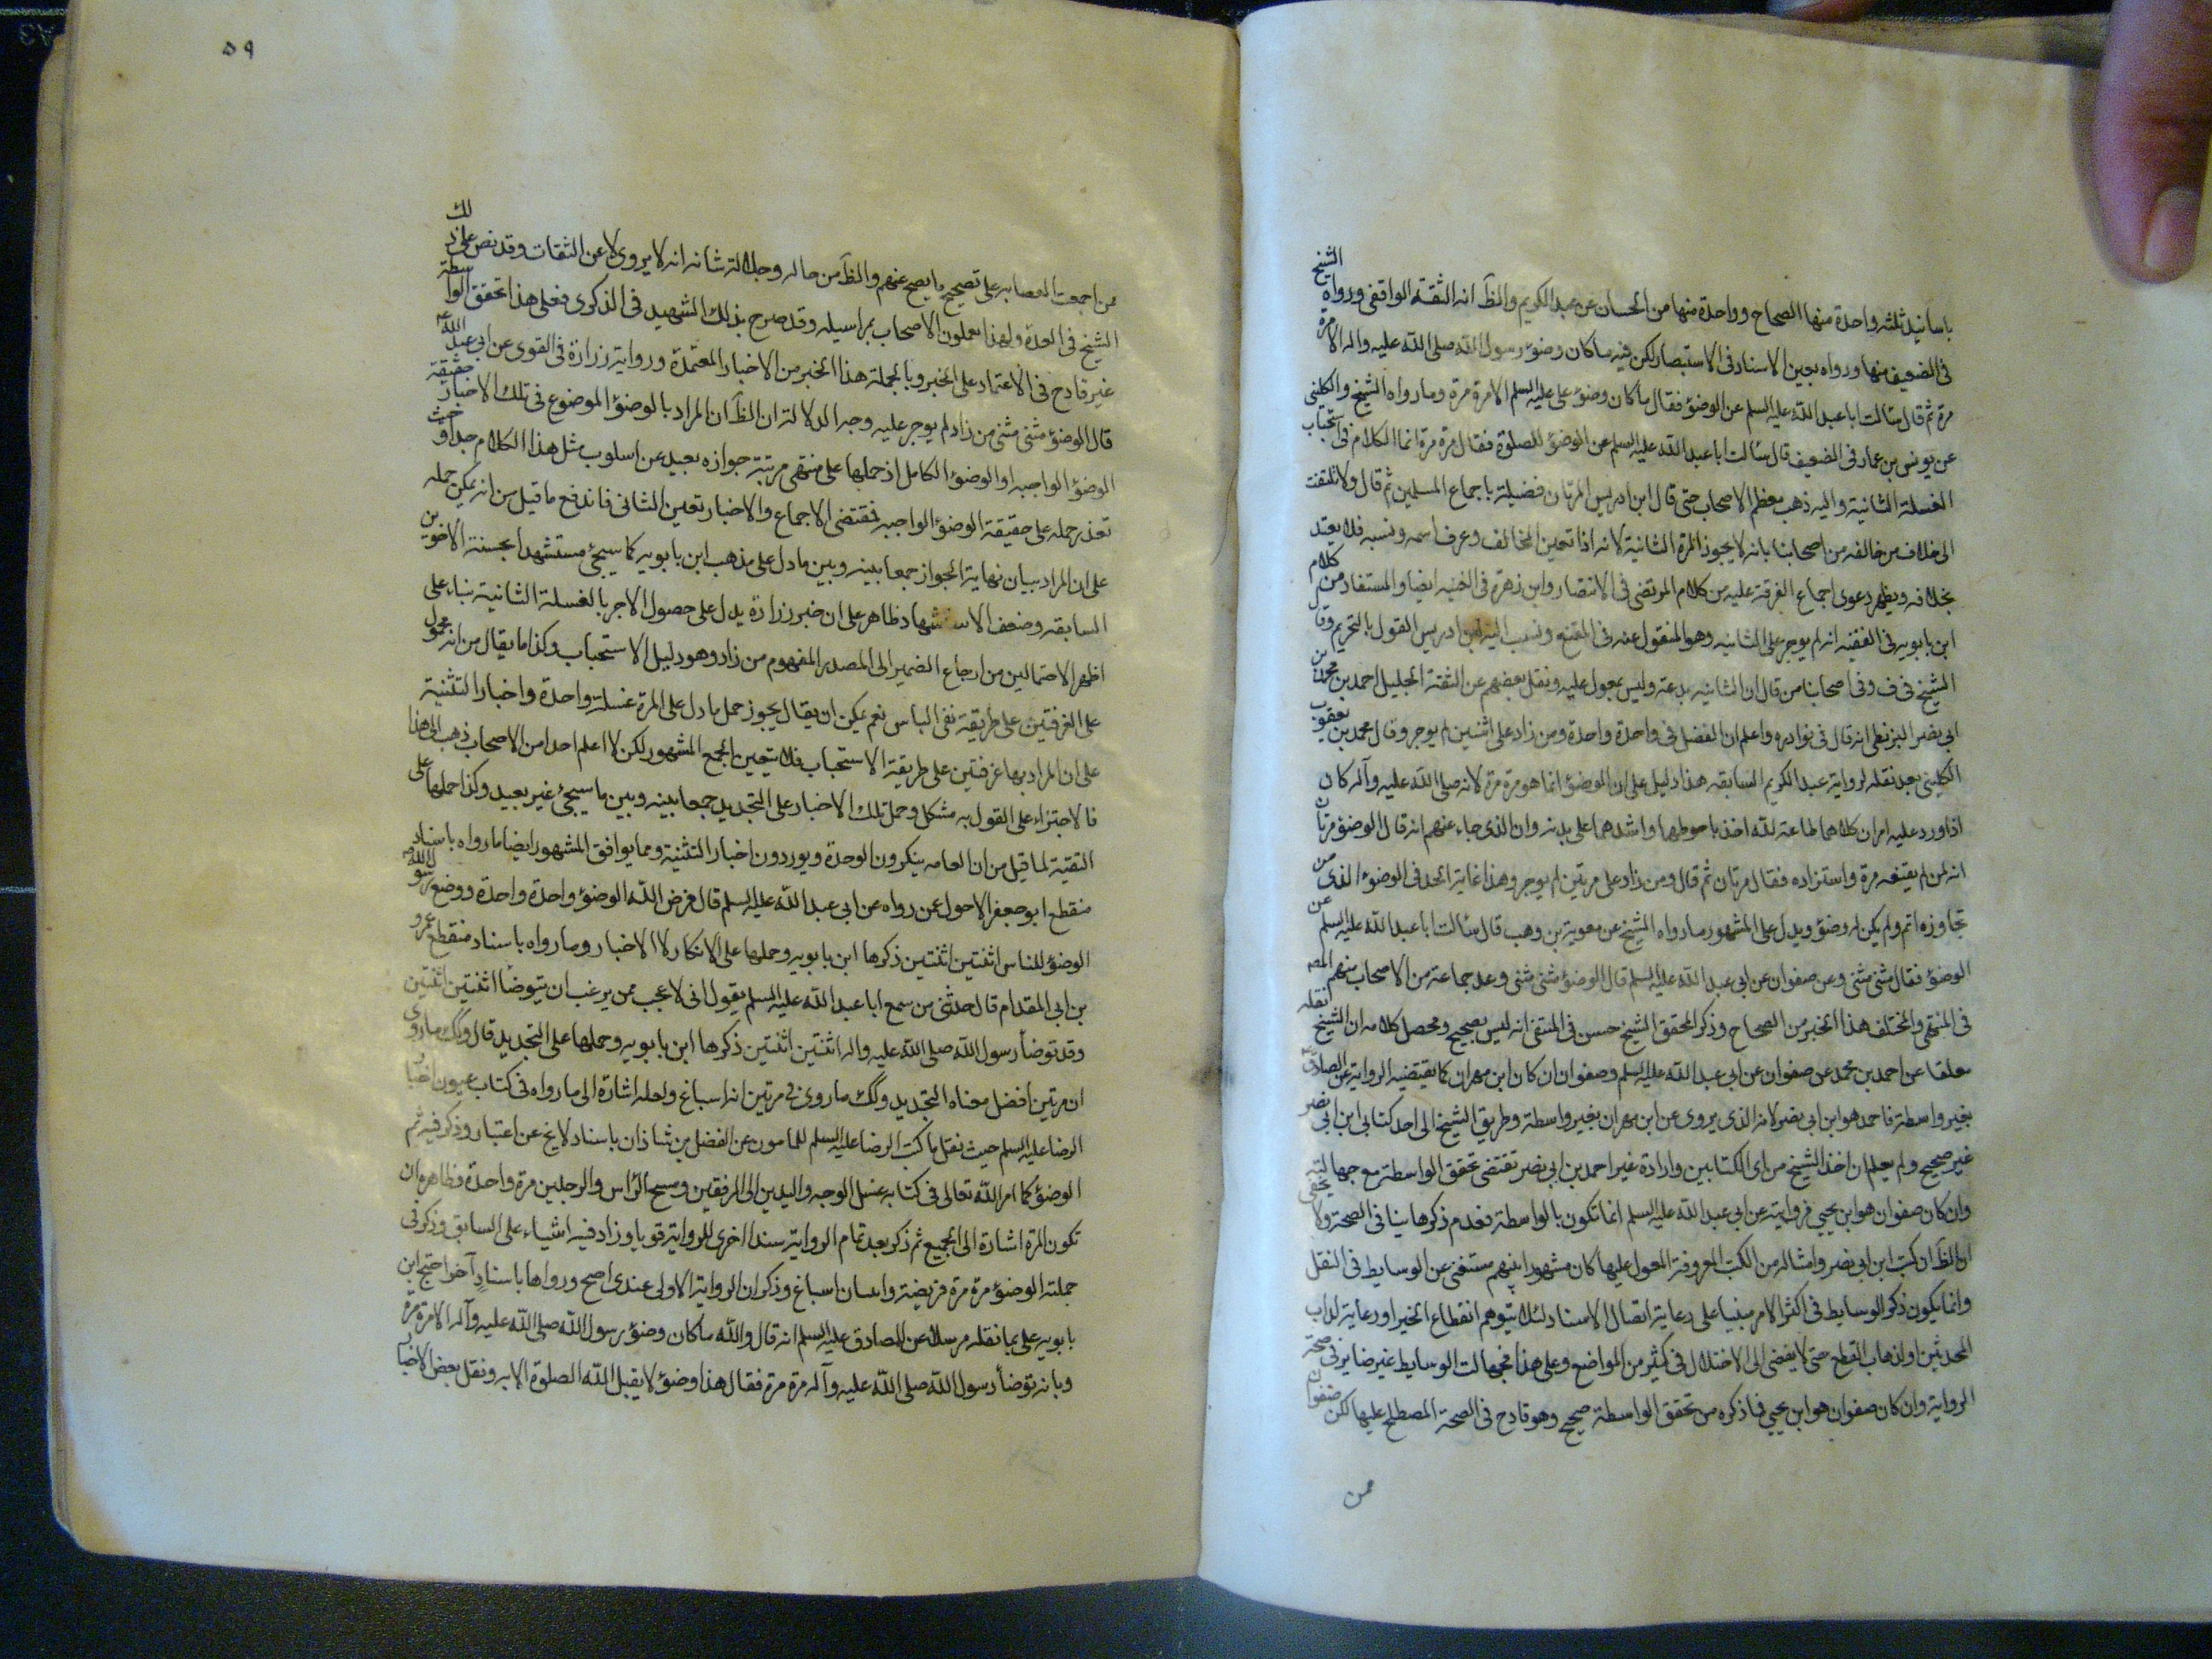 باسانيد ثلثه واحدة منها الصحاح وواحدة منها من الحسان عن عبد الكريم والظ انه الثقة الواقفى ورواه الشيخ
فى الضعيف منها ورواه بعين الاسناد فى الاستبصار لكن فيه ما كان وضوء رسول الله صلى الله عليه واله الا مرة
مرة ثم قال سالت ابا عبد الله عليه السلم عن الوضوء فقال ما كان وضوء على عليه السلم الا مرة مرة وما رواه الشيخ والكلينى
عن يونس بن عمار فى الضعيف قال سئالت ابا عبد الله عليه السلم عن الوضوء للصلوة فقال مرة مرة انما الكلام فى استحباب
الغسلة الثانية واليه ذهب معظم الاصحاب حتى قال ابن ادريس المرتان فضيلة باجماع المسلمين ثم قال ولا تلتفت
الى خلاف من خالفه من اصحابنا بانه لا يجوز المرة الثانية لانه اذا تعين المخالف وعرف اسمه ونسبه فلا يعتد
بخلافه ويظهر دعوى اجماع الفرقة عليه من كلام المرتضى فى الانتصار وابن زهرة فى الغنيه ايضا والمستفاد من كلام
ابن بابويه فى الفقيه انه لم يوجر على الثانيه وهو المنقول عنه فى المقنع ونسب اليه ابن ادريس القول بالتحريم وقا
الشيخ فى ف وفى اصحابنا من قال ان الثانيه بدعة وليس بمعول عليه ونقل بعضهم عن الثقة الجليل احمد بن محمد بن
ابى نصر البزنطى انه قال فى نوادره واعلم ان الفضل فى واحدة واحدة ومن زاد على اثنين لم يوجر وقال محمد بن يعقوب
الكلينى بعد نقله لرواية عبد الكريم السابقه هذا دليل على ان الوضوء انما هو مرة مرة لانه صلى الله عليه وآله كان
اذا ورد عليه امران كلاهما طاعة لله اخذ باحوطهما واشدهما على بدنه وان الذى جاء عنهم انه قال الوضوء مرتان
انه لمن لم يقنعه مرة واستزاده فقال مرتان ثم قال ومن زاد على مرتين لم يوجر وهذا غاية الحد فى الوضوء الذى من
تجاوزه اثم ولم يكن له وضوء ويدل على المشهور ما رواه الشيخ عن معوية بن وهب قال سئالت ابا عبد الله عليه السلم عن
الوضوء فقال مثنى مثنى وعن صفوان عن ابى عبد الله عليه السلم قال الوضوء مثنى مثنى وعد جماعة من الاصحاب منهم المصه
فى المنتهى والمختلف هذا الخبر من الصحاح وذكر المحقق الشيخ حسن فى المنتقى انه ليس بصحيح ومحصل كلامه ان الشيخ نقله
معلقا عن احمد بن محمد عن صفوان عن ابى عبد الله عليه السلم وصفوان ان كان ابن مهران كما يقتضيه الرواية عن الصادق
بغير واسطة فاحمد هو ابن ابى نصر لانه الذى يروى عن ابن مهران بغير واسطة وطريق الشيخ الى احد كتابى ابن ابى نصر
غير صحيح ولم يعلم ان اخذ الشيخ من اى الكتابين وارادة غير احمد بن ابى نصر تقتضى تحقق الواسطة مع جهالته
وان كان صفوان هو ابن يحيى فروايته عن ابى عبد الله عليه السلم انما تكون بالواسطة فعدم ذكرها ينافى الصحة ولا يخفى
ان الظ ان كتب ابن ابى نصر وامثاله من الكتب المعروفة المعول عليها كان مشهورا بينهم مستغنى عن الوسايط فى النقل
وانما يكون ذكر الوسايط فى اكثر الامر مبنيا على رعاية اتصال الاسناد لئلا يتوهم انقطاع الخبر او رعاية لداب
المحدثين او لذهاب القطع حتى لا يفضى الى الاختلال فى كثير من المواضع وعلى هذا فجهالت الوسايط غير ضاير فى صحة
الرواية وان كان صفوان هو ابن يحيى فما ذكره من تحقق الواسطة صحيح وهو قادح فى الصحة المصطلح عليها لكن صفوان
ممن
٥٩
ممن اجمعت العصابه على تصحيح ما يصح عنهم والظ من حاله وجلالة شانه انه لا يروى الا عن الثقات وقد نص على ذلك
الشيخ فى العدة ولهذا يعملون الاصحاب بمراسيله وقد صرح بذلك الشهيد فى الذكرى فعلى هذا تحقق الواسطة
غير قادح فى الاعتماد على الخبر وبالجملة هذا الخبر من الاخبار المعتمدة ورواية زرارة فى القوى عن ابى عبد الله ع
قال الوضوء مثنى مثنى من زاد لم يوجر عليه وجه الدلالة ان الظ ان المراد بالوضوء الموضوع فى تلك الاخبار حقيقة
الوضوء الواجبه او الوضوء الكامل اذ حملها على منتهى مرتبة جوازه بعيد عن اسلوب مثل هذا الكلام جدا وحيث
تعذر حمله على حقيقة الوضوء الواجبه فمقتضى الاجماع والاخبار تعين الثانى فاندفع ما قيل من انه يمكن حمله
على ان المراد بيان نهاية الجواز جمعا بينه وبين ما دل على مذهب ابن بابويه كما سيجئ مستشهدا بحسنة الاخوين
السابقه وضعف الاستشهاد ظاهر على ان خبر زرارة يدل على حصول الاجر بالغسلة الثانية بناء على
اظهر الاحتمالين من ارجاع الضمير الى المصدر المفهوم من زاد وهو دليل الاستحباب وكذا ما يقال من انه محمول
على الغرفتين على طريقة نفى الباس نعم يمكن ان يقال يجوز حمل ما دل على المرة غسلة واحدة واخبار التثنية
على ان المراد بها غرفتين على طريقة الاستحباب فلا يتعين الجمع المشهور لكن لا اعلم احدا من الاصحاب ذهب الى هذا
فالاجتزاء على القول به مشكل وحمل تلك الاخبار على التجديد جمعا بينه وبين ما سيجئ غير بعيد وكذا حملها على
التقية لما قيل من ان العامه ينكرون الوحدة ويوردون اخبار التثنية ومما يوافق المشهور ايضا ما رواه باسناد
منقطع ابو جعفر الاحول عمن رواه عن ابى عبد الله عليه السلم قال فرض الله الوضوء واحدة واحدة ووضع رسول الله ص
الوضوء للناس اثنتين اثنتين ذكرها ابن بابويه وحملها على الانكار لا الاخبار وما رواه باسناد منقطع عمرو
بن ابى المقدام قال حدثنى من سمع ابا عبد الله عليه السلم يقول انى لاعجب ممن يرغب ان يتوضأ اثنتين اثنتين
وقد توضأ رسول الله صلى الله عليه واله اثنتين اثنتين ذكرها ابن بابويه وحملها على التجديد قال وكك ما روى
ان مرتين افضل معناه التجديد وكك ما روى فى مرتين انه اسباغ ولعله اشارة الى ما رواه فى كتاب عيون اخبار
الرضا عليه السلم حيث نقل ما كتب الرضا عليه السلم للمامون عن الفضل بن شاذان باسناد لا يخ عن اعتبار وذكر فيه ثم
الوضوء كما امر الله تعالى فى كتابه غسل الوجه واليدين الى المرفقين ومسح الراس والرجلين مرة واحدة فظاهره ان
تكون المرة اشارة الى الجميع ثم ذكر بعد تمام الرواية سندا اخرى للرواية قويا وزاد فيه اشياء على السابق وذكر فى
جملته الوضوء مرة مرة فريضة واثنتان اسباغ وذكر ان الرواية الاولى عندى اصح ورواها باسناد آخر احتج ابن
بابويه على بما نقله مرسلا عن الصادق عليه السلم انه قال والله ما كان وضوء رسول الله صلى الله عليه وآله الا مرة مرة
وبانه توضأ رسول الله صلى الله عليه وآله مرة مرة فقال هذا وضوء لا يقبل الله الصلوة الا به ونقل بعض الاخبار